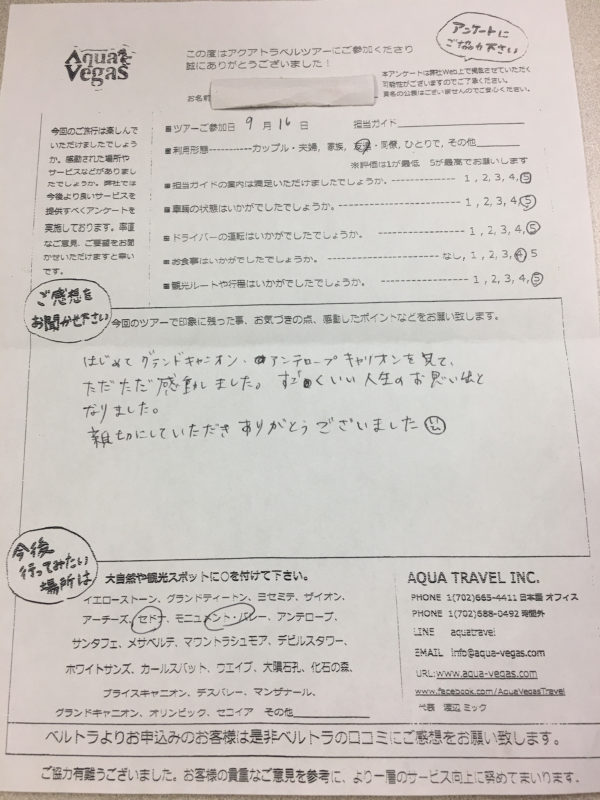 Aqua Vegas
この度はアクアトラベルツアーにご参加くださり
誠にありがとうございました！
アンケートに
ご協力下さい
本アンケートは弊社Web上で掲載させていただく
可能性がございますのでご了承ください。
実名の公表はございませんのでご安心ください。
お名前
今回のご旅行は楽しんで
いただけましたでしょう
か。感動された場所や
サービスなどがありまし
たでしょうか。弊社では
今後より良いサービスを
提供すべくアンケートを
実施しております。率直
なご意見、ご要望をお聞
かせいただけますと幸い
です。
■ツアーご参加日 9 月 16 日 担当ガイド
■利用形態-----------カップル・夫婦, 家族, 友達・同僚, ひとりで, その他
※評価は1が最低 5が最高でお願いします
■担当ガイドの案内は満足いただけましたでしょうか。 ------- 1 , 2, 3, 4, 5
■車輛の状態はいかがでしたでしょうか。------------------- 1 , 2, 3, 4, 5
■ドライバーの運転はいかがでしたでしょうか。 ------------- 1 , 2, 3, 4, 5
■お食事はいかがでしたでしょうか。 --------------- なし, 1, 2, 3, 4, 5
■観光ルートや行程はいかがでしたでしょうか。 ------------- 1 , 2, 3, 4, 5
ご感想を
お聞かせください
今回のツアーで印象に残った事、お気づきの点、感動したポイントなどをお願い致します。
はじめて グランドキャニオン・アンテロープ キャリオンを見て、
ただただ 感動しました。すごくいい 人生のお思い出と
なりました。
親切にしていただき ありがとうございました
今後
行ってみたい
場所は
大自然や観光スポットに○を付けて下さい。
イエローストーン、グランドティートン、ヨセミテ、ザイオン、
アーチーズ、セドナ、モニュメント・バレー、アンテロープ、
サンタフェ、メサベルテ、マウントラシュモア、デビルスタワー、
ホワイトサンズ、カールスバット、ウエイブ、大隕石孔、化石の森、
ブライスキャニオン、デスバレー、マンザナール、
グランドキャニオン、オリンピック、セコイア その他
AQUA TRAVEL INC.
PHONE 1(702)665-4411 日本語 オフィス
PHONE 1(702)688-0492 時間外
LINE aquatravel
EMAIL info@aqua-vegas.com
URL:www.aqua-vegas.com
www.facebook.com/AquaVegasTravel
代表 渡辺 ミック
ベルトラよりお申込みのお客様は是非ベルトラの口コミにご感想をお願い致します。
ご協力有難うございました。お客様の貴重なご意見を参考に、より一層のサービス向上に努めてまいります。